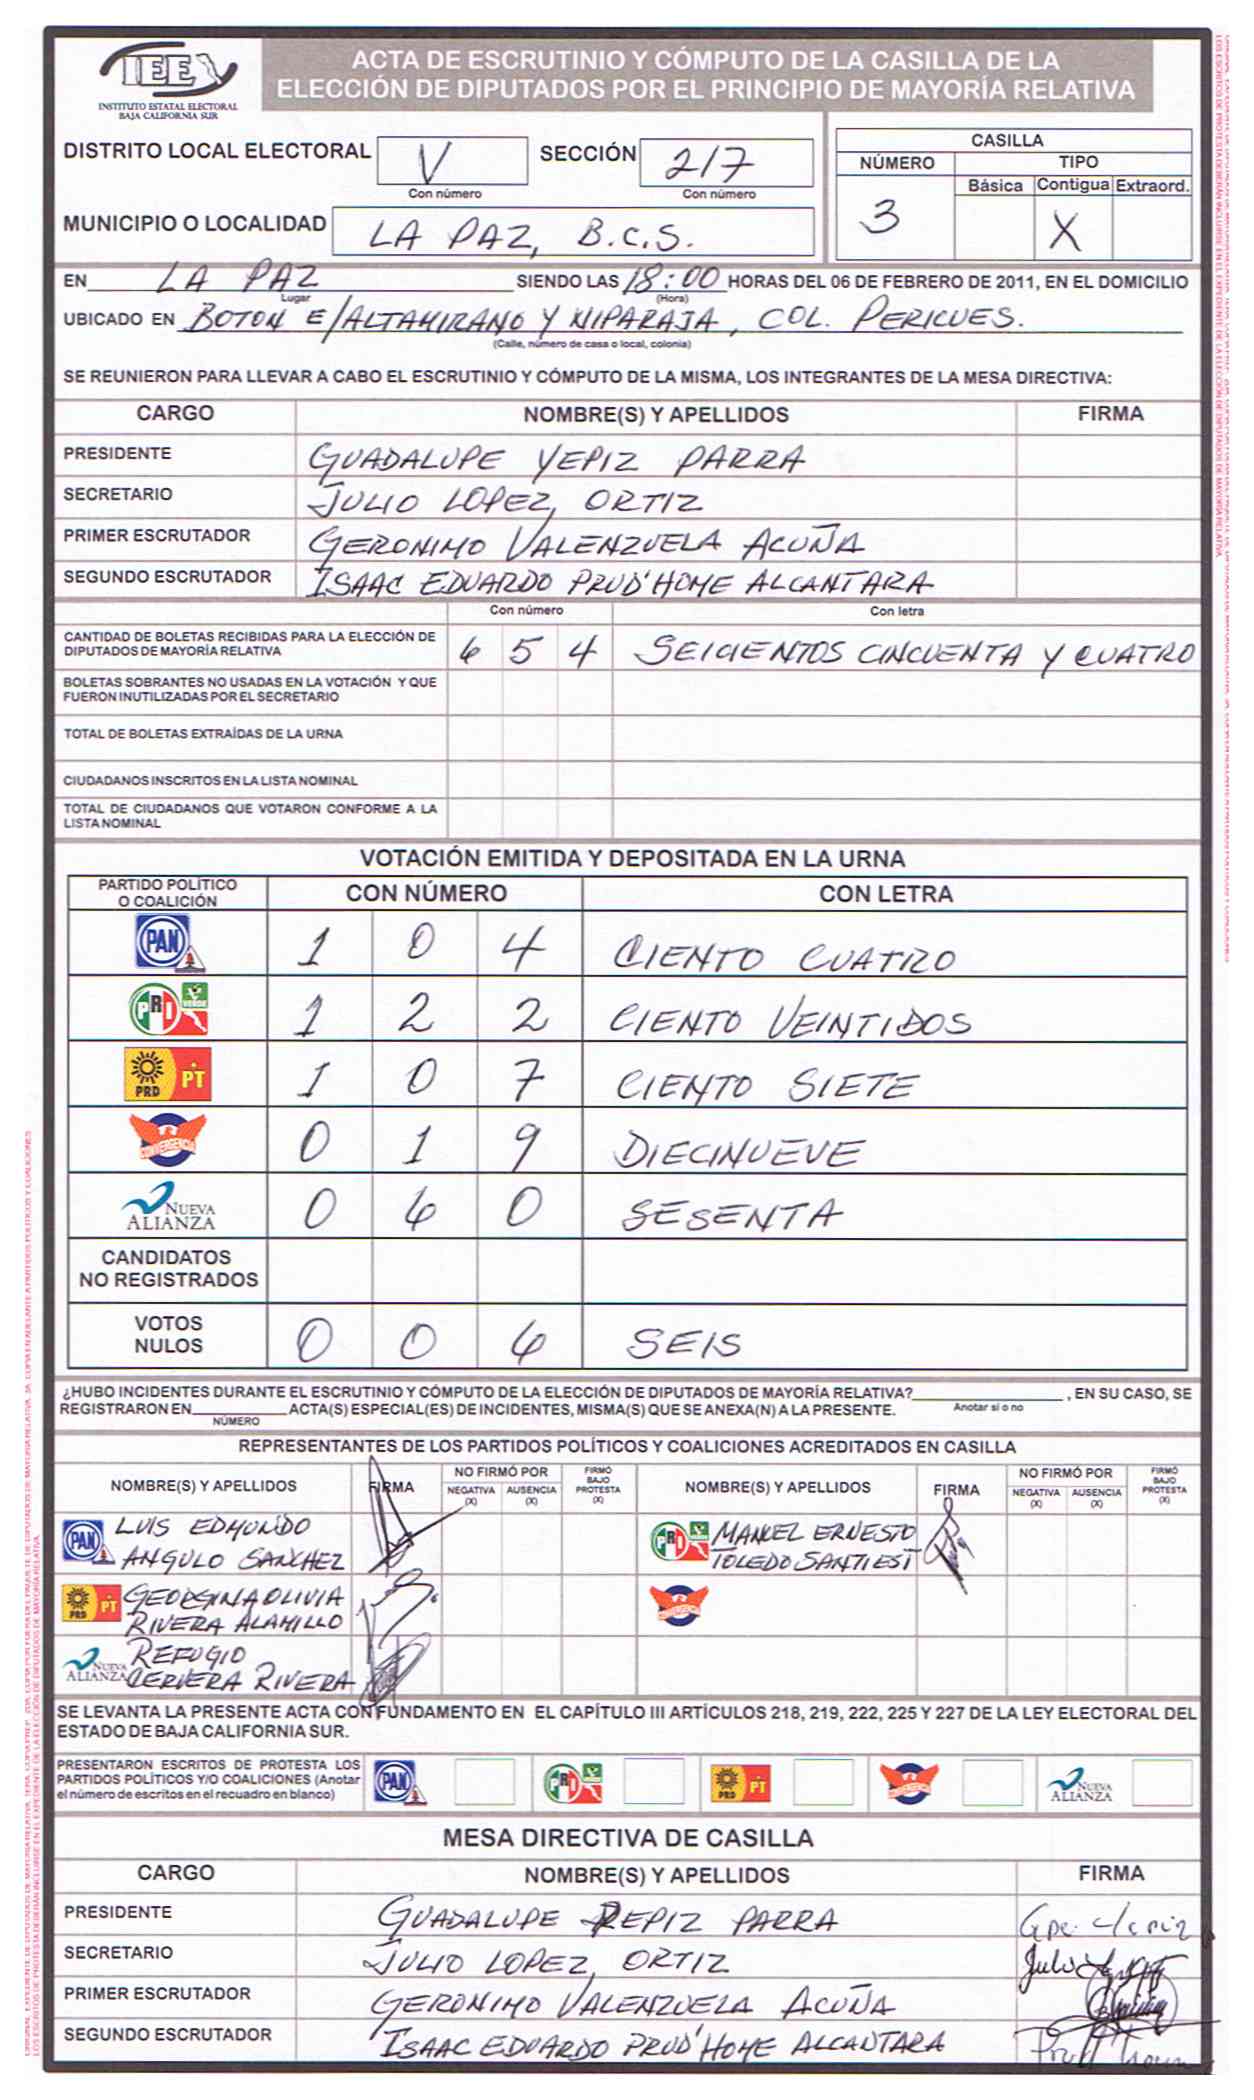 IEE
INSTITUTO ESTATAL ELECTORAL
BAJA CALIFORNIA SUR
ACTA DE ESCRUTINIO Y CÓMPUTO DE LA CASILLA DE LA
ELECCIÓN DE DIPUTADOS POR EL PRINCIPIO DE MAYORÍA RELATIVA
DISTRITO LOCAL ELECTORAL V SECCIÓN 217
Con número Con número
CASILLA
NÚMERO TIPO
Básica Contigua Extraord.
3 X
MUNICIPIO O LOCALIDAD LA PAZ, B.C.S.
EN LA PAZ SIENDO LAS 18:00 HORAS DEL 06 DE FEBRERO DE 2011, EN EL DOMICILIO
Lugar (Hora)
UBICADO EN BOTON E/ALTAMIRANO Y NIPARAJA, COL. PERICUES.
(Calle, número de casa o local, colonia)
SE REUNIERON PARA LLEVAR A CABO EL ESCRUTINIO Y CÓMPUTO DE LA MISMA, LOS INTEGRANTES DE LA MESA DIRECTIVA:
CARGO NOMBRE(S) Y APELLIDOS FIRMA
PRESIDENTE GUADALUPE YEPIZ PARRA
SECRETARIO JULIO LOPEZ ORTIZ
PRIMER ESCRUTADOR GERONIMO VALENZUELA ACUÑA
SEGUNDO ESCRUTADOR ISAAC EDUARDO PRUD'HOME ALCANTARA
Con número Con letra
CANTIDAD DE BOLETAS RECIBIDAS PARA LA ELECCIÓN DE
DIPUTADOS DE MAYORÍA RELATIVA 6 5 4 SEICIENTOS CINCUENTA Y CUATRO
BOLETAS SOBRANTES NO USADAS EN LA VOTACIÓN Y QUE
FUERON INUTILIZADAS POR EL SECRETARIO
TOTAL DE BOLETAS EXTRAÍDAS DE LA URNA
CIUDADANOS INSCRITOS EN LA LISTA NOMINAL
TOTAL DE CIUDADANOS QUE VOTARON CONFORME A LA
LISTA NOMINAL
VOTACIÓN EMITIDA Y DEPOSITADA EN LA URNA
PARTIDO POLÍTICO
O COALICIÓN CON NÚMERO CON LETRA
PAN 1 0 4 CIENTO CUATRO
PRI VERDE 1 2 2 CIENTO VEINTIDOS
PRD PT 1 0 7 CIENTO SIETE
CONVERGENCIA 0 1 9 DIECINUEVE
NUEVA
ALIANZA 0 6 0 SESENTA
CANDIDATOS
NO REGISTRADOS
VOTOS
NULOS 0 0 6 SEIS
¿HUBO INCIDENTES DURANTE EL ESCRUTINIO Y CÓMPUTO DE LA ELECCIÓN DE DIPUTADOS DE MAYORÍA RELATIVA? , EN SU CASO, SE
Anotar sí o no
REGISTRARON EN ACTA(S) ESPECIAL(ES) DE INCIDENTES, MISMA(S) QUE SE ANEXA(N) A LA PRESENTE.
NÚMERO
REPRESENTANTES DE LOS PARTIDOS POLÍTICOS Y COALICIONES ACREDITADOS EN CASILLA
NOMBRE(S) Y APELLIDOS FIRMA NO FIRMÓ POR NEGATIVA (X) AUSENCIA (X) FIRMÓ BAJO PROTESTA (X) NOMBRE(S) Y APELLIDOS FIRMA NO FIRMÓ POR NEGATIVA (X) AUSENCIA (X) FIRMÓ BAJO PROTESTA (X)
PAN LUIS EDMUNDO
ANGULO SANCHEZ
PRI MANUEL ERNESTO
TOLEDO SANTIEST
PRD PT GEORGINA OLIVIA
RIVERA ALAMILLO
CONVERGENCIA
NUEVA
ALIANZA REFUGIO
CERVERA RIVERA
SE LEVANTA LA PRESENTE ACTA CON FUNDAMENTO EN EL CAPÍTULO III ARTÍCULOS 218, 219, 222, 225 Y 227 DE LA LEY ELECTORAL DEL
ESTADO DE BAJA CALIFORNIA SUR.
PRESENTARON ESCRITOS DE PROTESTA LOS
PARTIDOS POLÍTICOS Y/O COALICIONES (Anotar
el número de escritos en el recuadro en blanco)
PAN PRI PRD PT CONVERGENCIA NUEVA ALIANZA
MESA DIRECTIVA DE CASILLA
CARGO NOMBRE(S) Y APELLIDOS FIRMA
PRESIDENTE GUADALUPE YEPIZ PARRA
SECRETARIO JULIO LOPEZ ORTIZ
PRIMER ESCRUTADOR GERONIMO VALENZUELA ACUÑA
SEGUNDO ESCRUTADOR ISAAC EDUARDO PRUD'HOME ALCANTARA